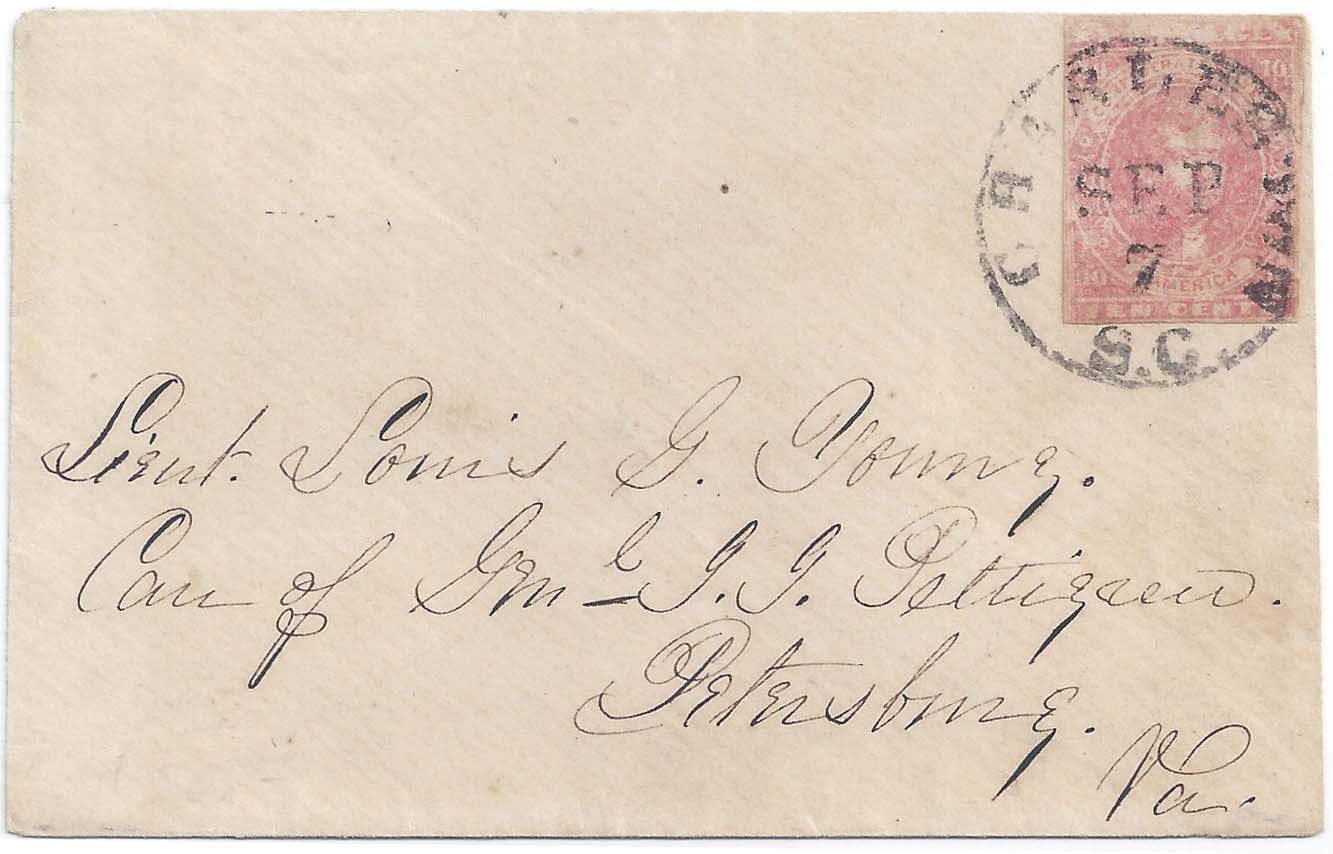 CHARLESTON
SEP
7
S.C.
10
AMERICA
TEN CENTS
Lieut. Louis G. Young.
Care of Genl J. J. Pettigrew.
Petersburg.
Va.